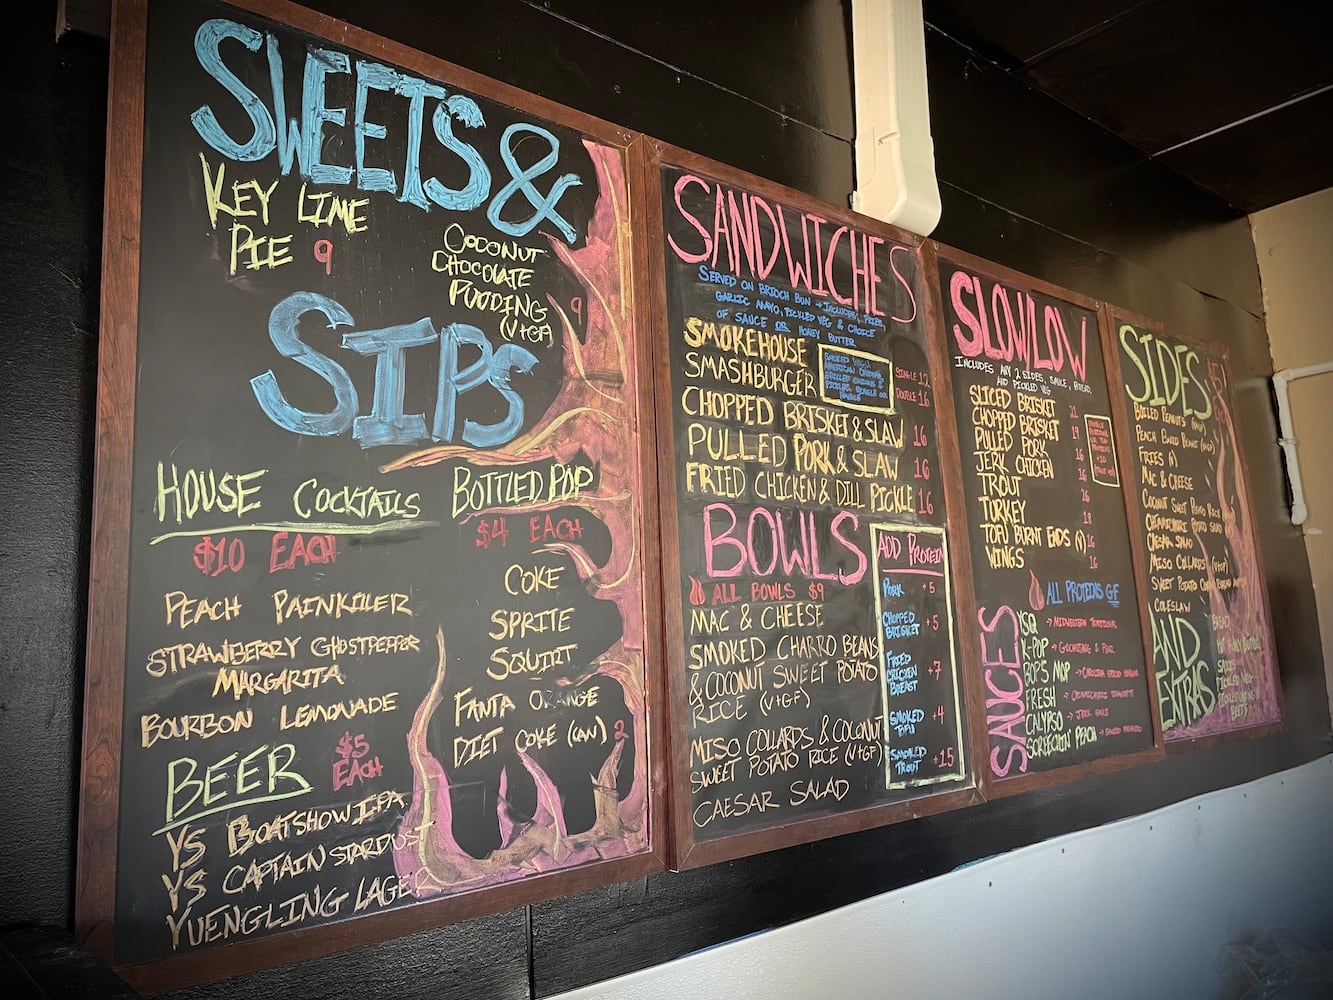 SWEETS &
KEY LIME
PIE 9
COCONUT
CHOCOLATE
PUDDING 9
(V+GF)
SIPS
HOUSE COCKTAILS
$10 EACH
PEACH PAINKILLER
STRAWBERRY GHOSTPEPPER
MARGARITA
BOURBON LEMONADE
BEER $5
EACH
YS BOATSHOW IPA
YS CAPTAIN STARDUST
YUENGLING LAGER
BOTTLED POP
$4 EACH
COKE
SPRITE
SQUIRT
FANTA ORANGE
DIET COKE (CAN) 2
SANDWICHES
SERVED ON BRIOCH BUN → INCLUDES, FRIES,
GARLIC MAYO, PICKLED VEG & CHOICE
OF SAUCE OR HONEY BUTTER
SMOKEHOUSE
SMASHBURGER
AMERICAN CHEESE,
GRILLED ONIONS &
PICKLES. SINGLE OR
DOUBLE
SINGLE 12
DOUBLE 16
CHOPPED BRISKET & SLAW 16
PULLED PORK & SLAW 16
FRIED CHICKEN & DILL PICKLE 16
BOWLS
ALL BOWLS $9
MAC & CHEESE
SMOKED CHARRO BEANS
& COCONUT SWEET POTATO
RICE (V+GF)
MISO COLLARDS & COCONUT
SWEET POTATO RICE (V+GF)
CAESAR SALAD
ADD PROTEIN
PORK +5
CHOPPED
BRISKET +5
FRIED
CHICKEN +7
BREAST
SMOKED +4
TOFU
SMOKED
TROUT +15
SLOW/LOW
INCLUDES ANY 2 SIDES, SAUCE, BREAD,
AND PICKLED VEG
SLICED BRISKET 21
CHOPPED BRISKET 19
PULLED PORK 16
JERK CHICKEN 16
TROUT
TURKEY 18
TOFU BURNT ENDS (V) 16
WINGS 16
ALL PROTEINS GF
SAUCES
YSQ → MIDWESTERN TRADITIONAL
K-POP → GOCHUJANG & PEAR
BOP'S MOP → CAROLINA BBQ VINEGAR
FRESH
CALYPSO → JERK SAUCE
SCREECHIN' PEACH
SIDES
BOILED PEANUTS
PEACH BAKED BEANS
FRIES (V)
MAC & CHEESE
COCONUT SWEET POTATO RICE
CAESAR SALAD
MISO COLLARDS (V+GF)
COLESLAW
AND
EXTRAS
BREAD